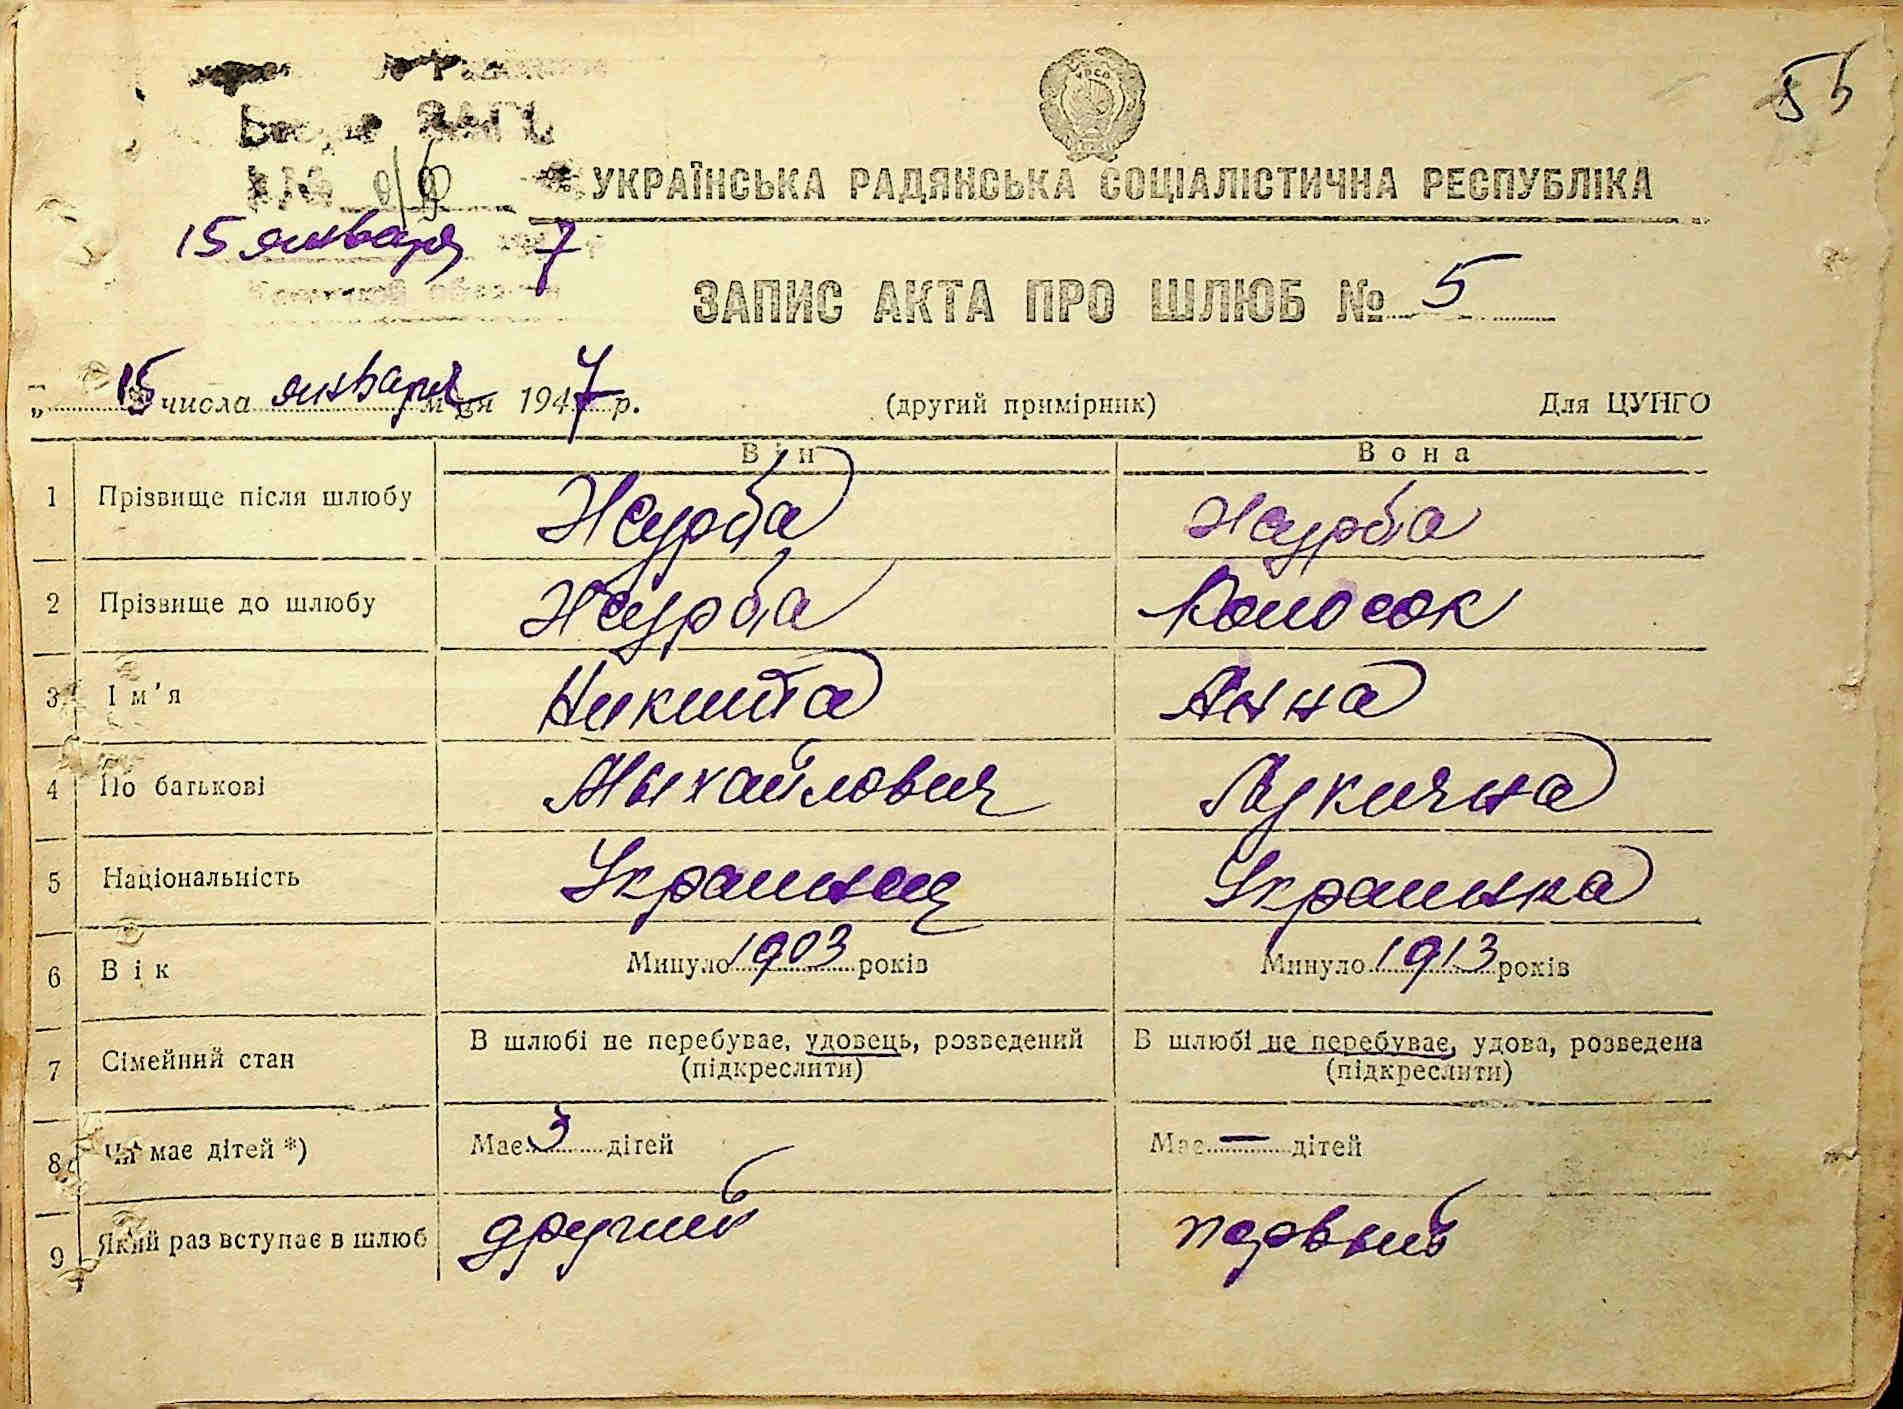 55
ЗАГС
УКРАЇНСЬКА РАДЯНСЬКА СОЦІАЛІСТИЧНА РЕСПУБЛІКА
15 января 7
ЗАПИС АКТА ПРО ШЛЮБ № 5
„ 15 числа января м-ця 1947 р. (другий примірник) Для ЦУНГО
Він Вона
1 Прізвище після шлюбу Журба Журба
2 Прізвище до шлюбу Журба Колосок
3 Ім'я Никита Анна
4 По батькові Михайлович Лукична
5 Національність Украинец Украинка
6 Вік Минуло 1903 років Минуло 1913 років
7 Сімейний стан В шлюбі не перебуває, удовець, розведений (підкреслити) В шлюбі не перебуває, удова, розведена (підкреслити)
8 Чи має дітей *) Має 3 дітей Має — дітей
9 Який раз вступає в шлюб другий первый